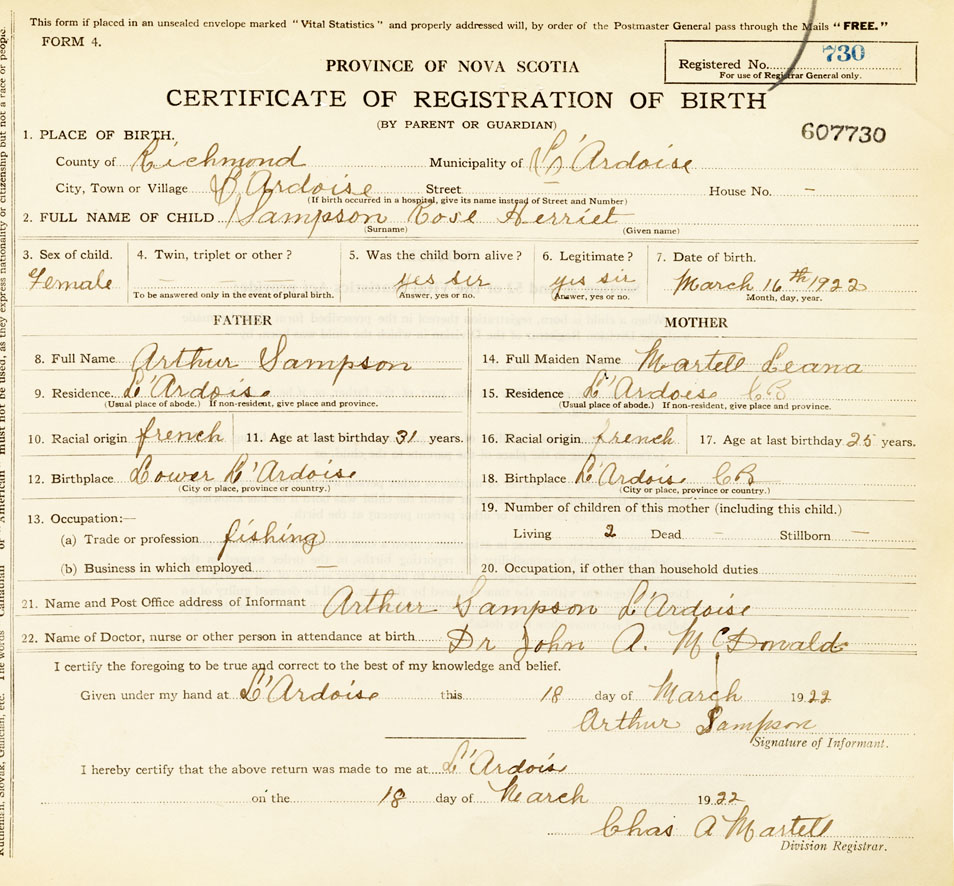 This form if placed in an unsealed envelope marked "Vital Statistics" and properly addressed will, by order of the Postmaster General pass through the Mails "FREE."
FORM 4.
Registered No. 730
For use of Registrar General only.
PROVINCE OF NOVA SCOTIA
CERTIFICATE OF REGISTRATION OF BIRTH
(BY PARENT OR GUARDIAN)
607730
1. PLACE OF BIRTH.
County of Richmond Municipality of L'Ardoise
City, Town or Village L'Ardoise Street — House No. —
(If birth occurred in a hospital, give its name instead of Street and Number)
2. FULL NAME OF CHILD Sampson Rose Herriet
(Surname) (Given name)
3. Sex of child. 4. Twin, triplet or other? 5. Was the child born alive? 6. Legitimate? 7. Date of birth.
Female — — — yes sir yes sir March 16th 1922
To be answered only in the event of plural birth. Answer, yes or no. Answer, yes or no. Month, day, year.
FATHER MOTHER
8. Full Name Arthur Sampson 14. Full Maiden Name Martell Leana
9. Residence L'Ardoise 15. Residence L'Ardoise CB
(Usual place of abode.) If non-resident, give place and province. (Usual place of abode.) If non-resident, give place and province.
10. Racial origin french 11. Age at last birthday 31 years. 16. Racial origin french 17. Age at last birthday 25 years.
12. Birthplace Lower L'Ardoise 18. Birthplace L'Ardois CB
(City or place, province or country.) (City or place, province or country.)
13. Occupation:— 19. Number of children of this mother (including this child.)
(a) Trade or profession fishing Living 2 Dead — Stillborn —
(b) Business in which employed — 20. Occupation, if other than household duties
21. Name and Post Office address of Informant Arthur Sampson L'Ardoise
22. Name of Doctor, nurse or other person in attendance at birth Dr John A. McDonald
I certify the foregoing to be true and correct to the best of my knowledge and belief.
Given under my hand at L'Ardoise this 18 day of March 1922
Arthur Sampson
Signature of Informant.
I hereby certify that the above return was made to me at L'Ardois
on the 18 day of March 1922
Chas A Martell
Division Registrar.
must not be used, as they express nationality or citizenship but not a race or people.
"American"
Ruthenian, Slovak, Galician, etc. The words "Canadian" or